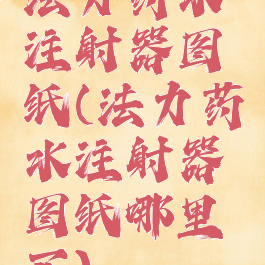 法力药水
注射器图
纸(法力药
水注射器
图纸哪里
买)